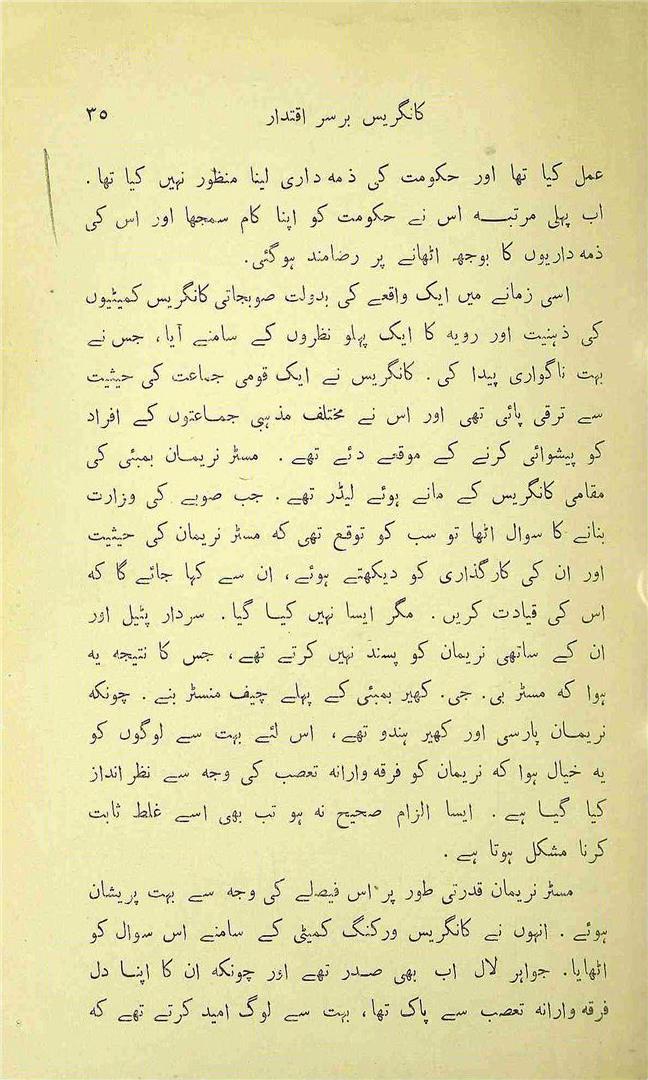 کانگریس بر سر اقتدار ۳۵
عمل کیا تھا اور حکومت کی ذمہ داری لینا منظور نہیں کیا تھا.
اب پہلی مرتبہ اس نے حکومت کو اپنا کام سمجھا اور اس کی
ذمہ داریوں کا بوجھ اٹھانے پر رضامند ہوگئی.
اسی زمانے میں ایک واقعے کی بدولت صوبجاتی کانگریس کمیٹیوں
کی ذہنیت اور رویہ کا ایک پہلو نظروں کے سامنے آیا، جس نے
بہت ناگواری پیدا کی. کانگریس نے ایک قومی جماعت کی حیثیت
سے ترقی پائی تھی اور اس نے مختلف مذہبی جماعتوں کے افراد
کو پیشوائی کرنے کے موقعے دئے تھے. مسٹر نریمان بمبئی کی
مقامی کانگریس کے مانے ہوئے لیڈر تھے. جب صوبے کی وزارت
بنانے کا سوال اٹھا تو سب کو توقع تھی که مسٹر نریمان کی حیثیت
اور ان کی کارگذاری کو دیکھتے ہوئے، ان سے کہا جائے گا که
اس کی قیادت کریں. مگر ایسا نہیں کیا گیا. سردار پٹیل اور
ان کے ساتھی نریمان کو پسند نہیں کرتے تھے، جس کا نتیجه یه
ہوا که مسٹر بی. جی. کھیر بمبئی کے پہلے چیف منسٹر بنے. چونکه
نریمان پارسی اور کھیر ہندو تھے، اس لئے بہت سے لوگوں کو
یه خیال ہوا که نریمان کو فرقه وارانه تعصب کی وجه سے نظر انداز
کیا گیا ہے. ایسا الزام صحیح نه ہو تب بھی اسے غلط ثابت
کرنا مشکل ہوتا ہے.
مسٹر نریمان قدرتی طور پر اس فیصلے کی وجه سے بہت پریشان
ہوئے. انہوں نے کانگریس ورکنگ کمیٹی کے سامنے اس سوال کو
اٹھایا. جواہر لال اب بھی صدر تھے اور چونکه ان کا اپنا دل
فرقه وارانه تعصب سے پاک تھا، بہت سے لوگ امید کرتے تھے که